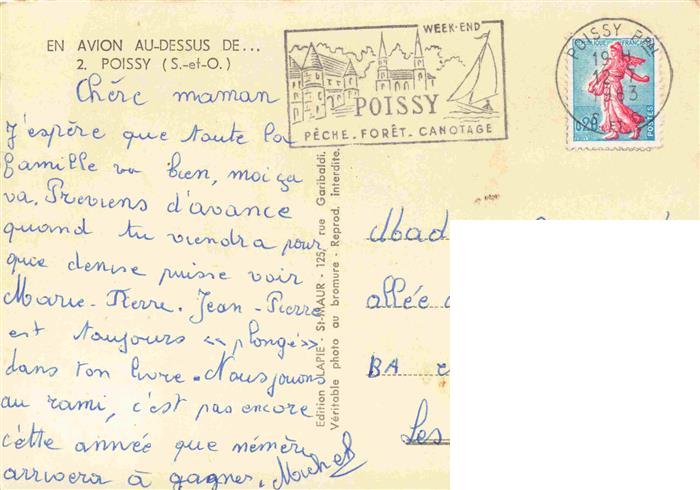 EN AVION AU-DESSUS DE...
2. POISSY (S.-et-O.)
WEEK-END
POISSY
PÊCHE . FORÊT . CANOTAGE
POISSY PPAL
19 H
12
1963
S. ET O.
RÉPUBLIQUE FRANÇAISE
0,20
POSTES
Chère maman
J'espère que toute la
famille va bien, moi ça
va. Préviens d'avance
quand tu viendra pour
que denise puisse voir
Marie-Pierre. Jean-Pierre
est toujours « plongé »
dans ton livre. Nous jouons
au rami, c'est pas encore
cette année que mémère
arrivera à gagner. Michel
Edition LAPIE - St-MAUR - 125, rue Garibaldi.
Véritable photo au bromure - Reprod. Interdite.
Mad
allée
BA
Les